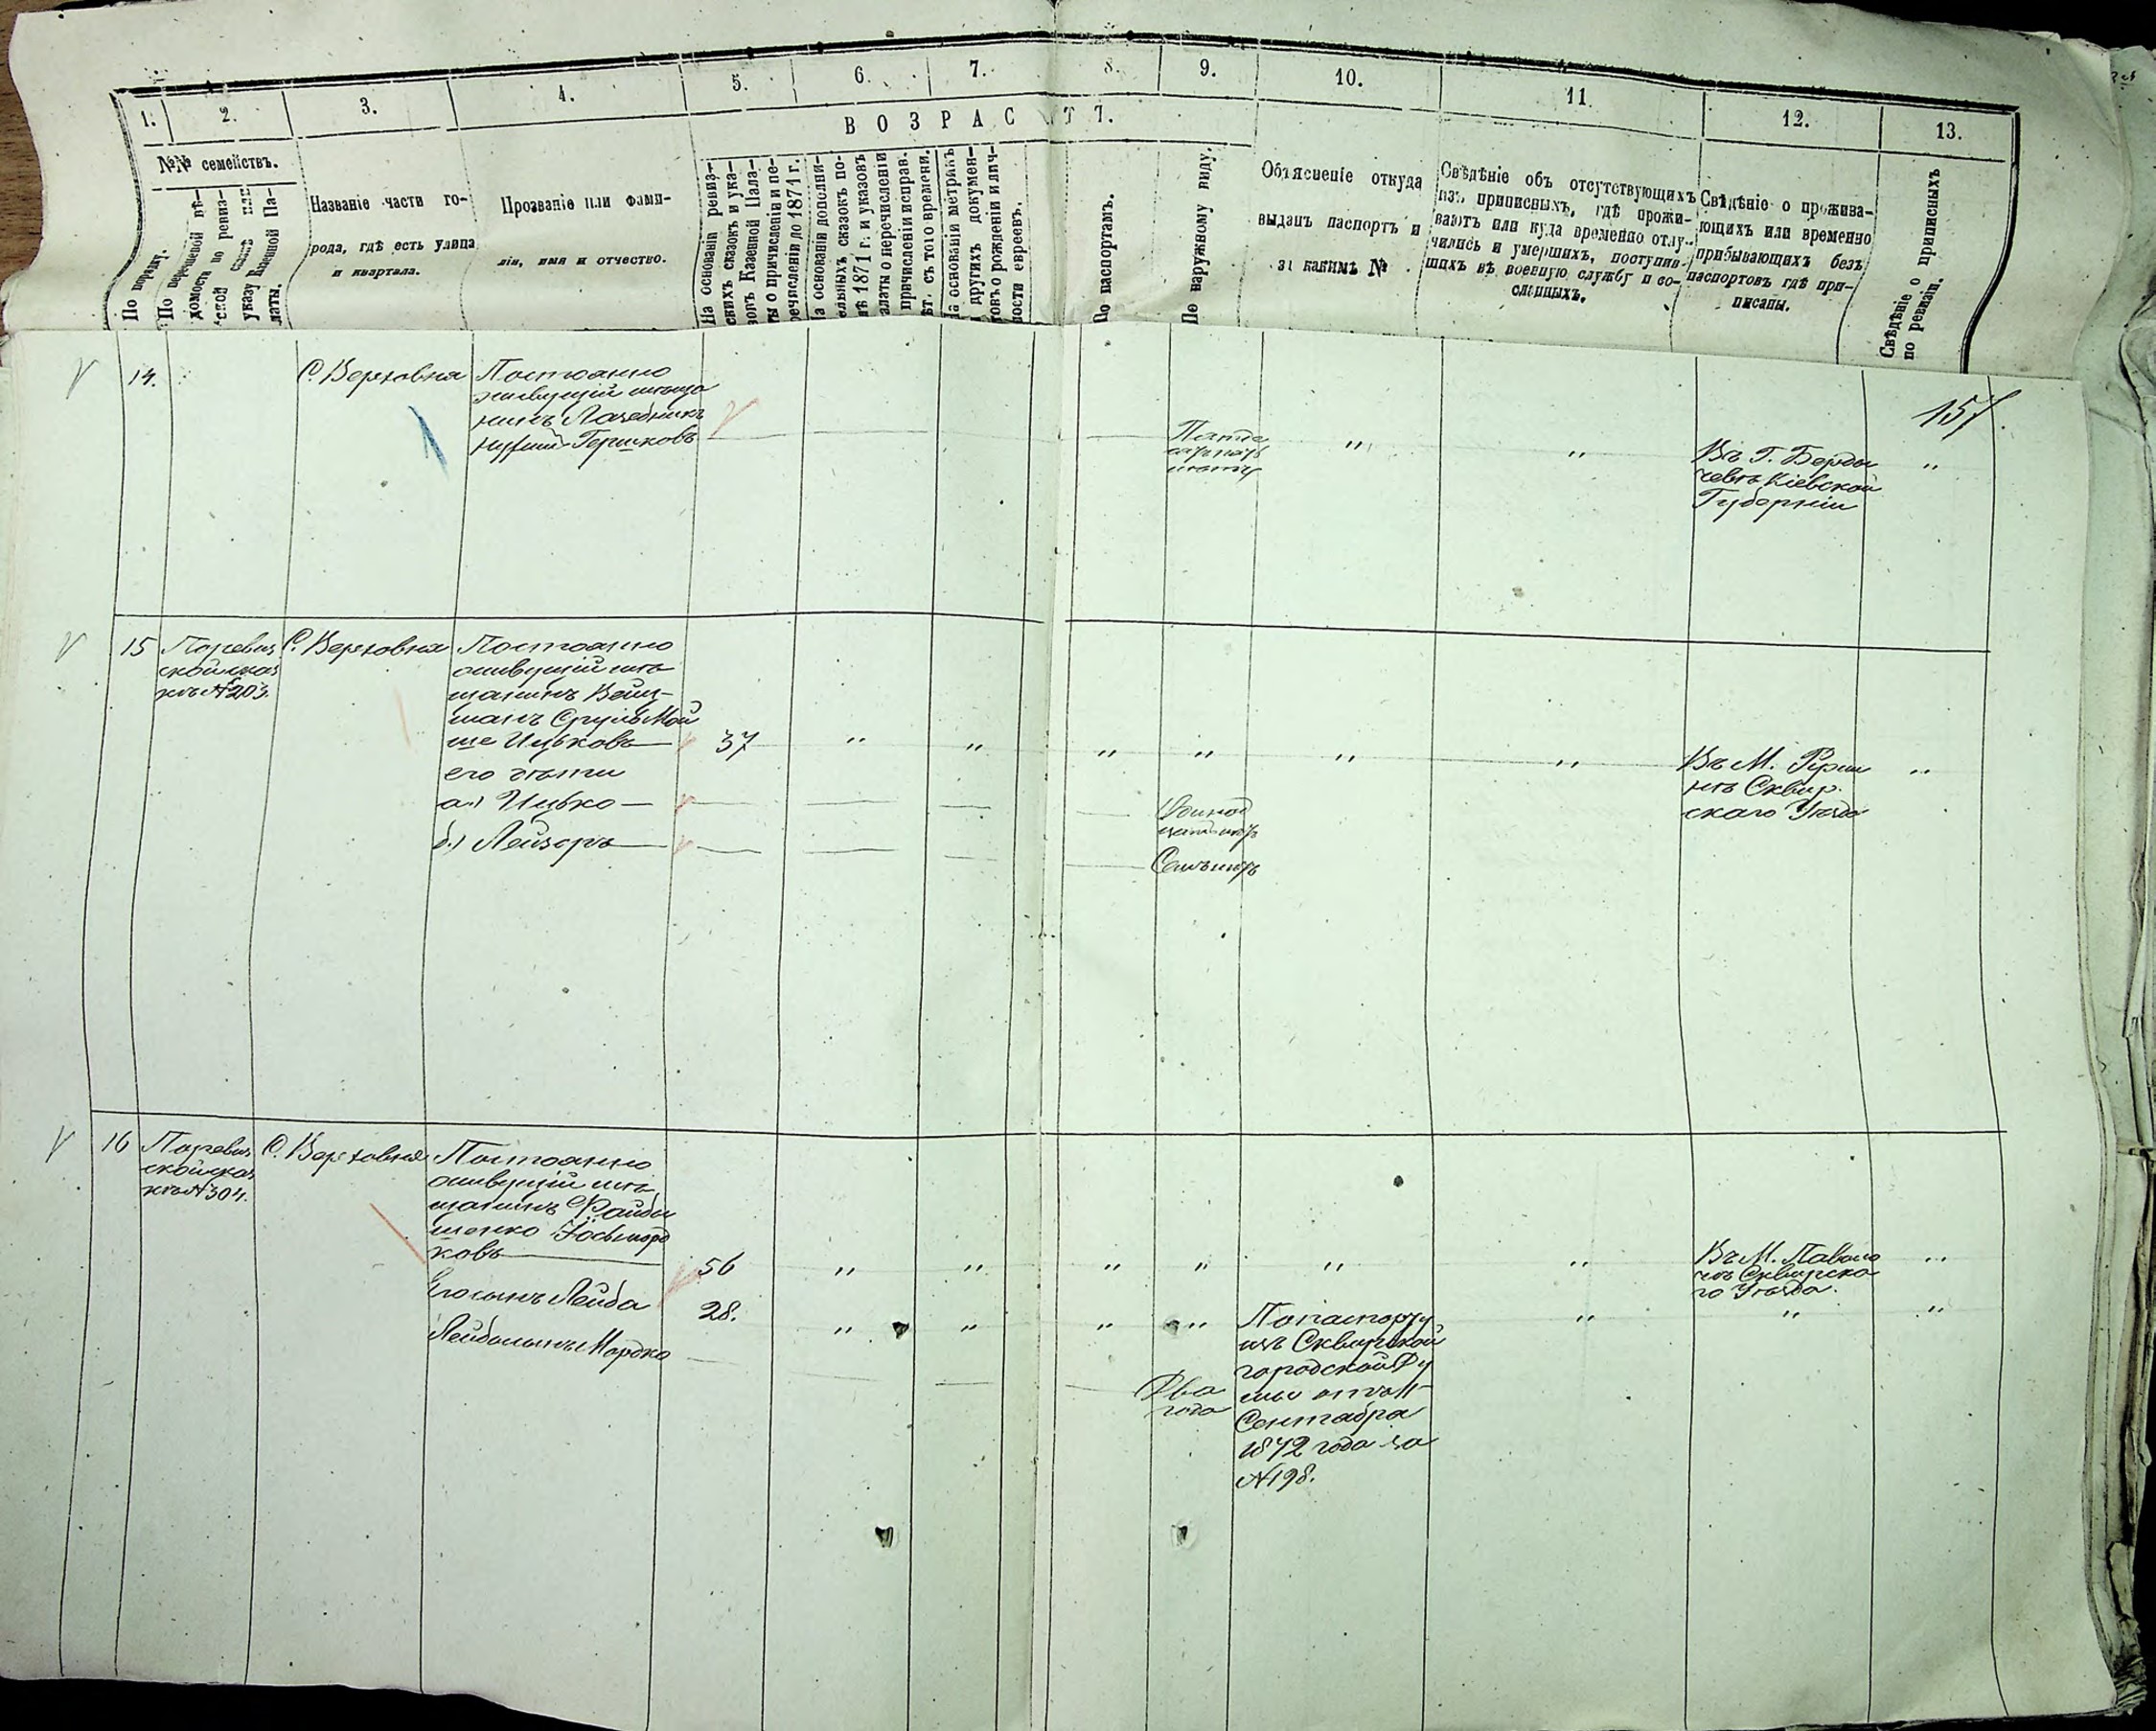 1.
2.
3.
4.
5.
6.
7.
8.
9.
10.
11.
12.
13.
В О З Р А С Т Ъ.
№№ семействъ.
По порядку.
По перечневой вѣ-
домости по ревиз-
ской сказкѣ или
указу Казенной Па-
латы.
Названіе части го-
рода, гдѣ есть улица
и квартала.
Прозваніе или фами-
лія, имя и отчество.
На основаніи ревиз-
скихъ сказокъ и ука-
зовъ Казенной Пала-
ты о причисленіи и пе-
речисленіи до 1871 г.
На основаніи дополни-
ельныхъ сказокъ по-
лѣ 1871 г. и указовъ
алаты о перечисленіи
причисленіи исправ.
ѣт. съ того времени.
на основаніи метрикъ
и другихъ докумен-
товъ о рожденіи и лич-
ности евреевъ.
По паспортамъ.
По наружному виду.
Объясненіе откуда
выданъ паспортъ и
за какимъ №
Свѣдѣніе объ отсутствующихъ
изъ приписныхъ, гдѣ прожи-
ваютъ или куда временно отлу-
чились и умершихъ, поступив-
шихъ въ военную службу и со-
сланныхъ.
Свѣдѣніе о прожива-
ющихъ или временно
прибывающихъ безъ
паспортовъ гдѣ при-
писаны.
Свѣдѣніе о приписныхъ
по ревизіи.
157
14.
С. Верховня
Постоянно
живущій мѣща
нинъ
Гершковъ
Пятде
лѣтъ
"
"
Въ Г. Берди
чевѣ Кіевской
Губерніи
"
15
По ревиз
ской сказ
кѣ №203.
С. Верховня
Постоянно
живущій мѣ
щанинъ Вайц-
манъ Сруль Мой
ше Ицьковъ
37
"
"
"
"
"
"
Въ М. Ружи
нѣ Сквир.
скаго Уѣзда
"
его дѣти
а.) Ицько
Одинад
цать лѣтъ
б.) Лейзоръ
Семь лѣтъ
16
По ревиз
ской сказ
кѣ №304.
С. Верховня
Постоянно
живущій мѣ
щанинъ Файби
шенко Іось Морд
ковъ
56
"
"
"
"
"
"
Въ М. Паволо
чѣ Сквирска
го Уѣзда.
"
Его сынъ Лейба
28.
"
"
"
"
По паспорту
изъ Сквирской
городской Ду
мы отъ 11
Сентября
1872 года за
№198.
"
"
"
Лейбы сынъ Мордко
Два
года